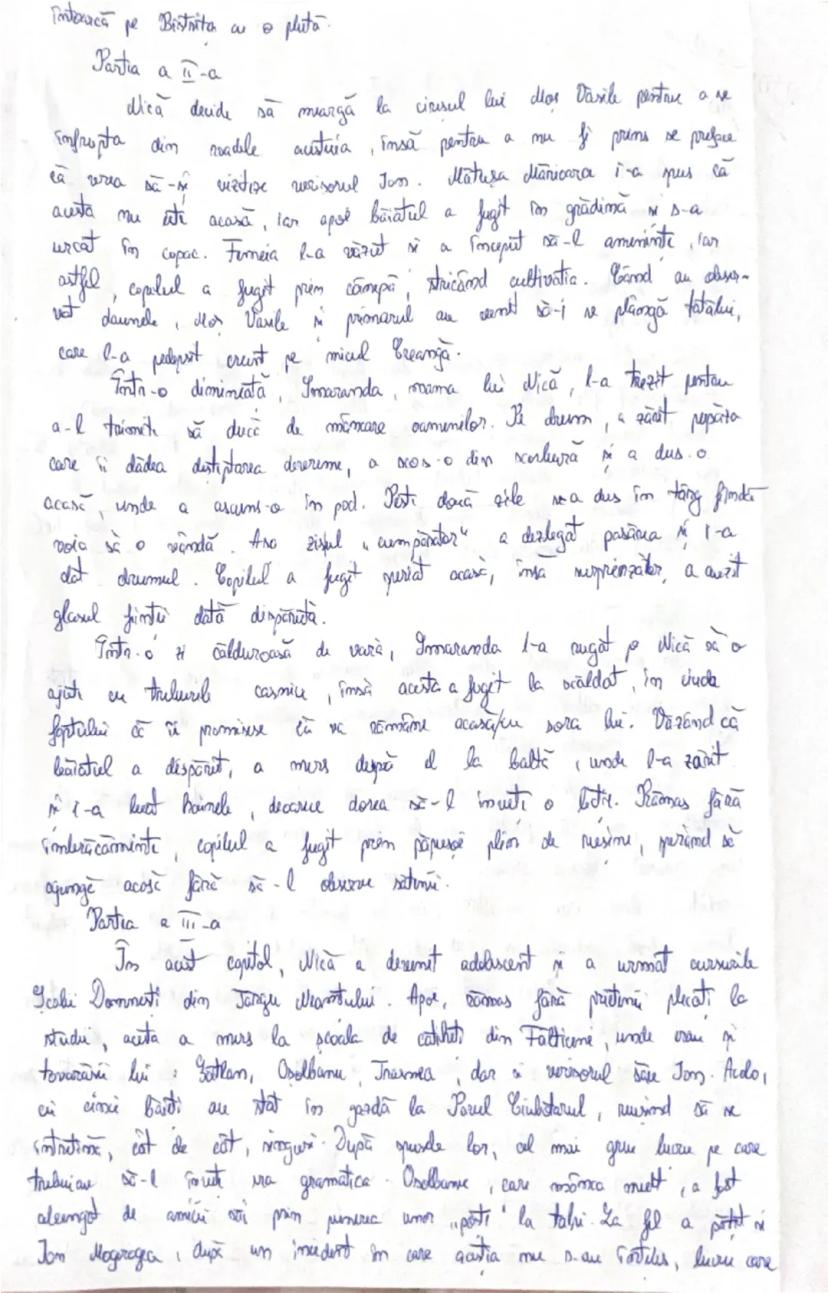 întoarcă pe Bistrița cu o plută.
Partea a II-a
Nică decide să meargă la cireșul lui Moș Vasile pentru a se
înfrupta din roadele acestuia, însă pentru a nu fi prins se preface
că vrea să-și viziteze verișorul Ion. Mătușa Mărioara i-a spus că
acesta nu este acasă, iar apoi băiatul a fugit în grădină și s-a
urcat în copac. Femeia l-a văzut și a început să-l amenințe, iar
astfel, copilul a fugit prin cânepă, stricând cultivația. Când au obser-
vat daunele, Moș Vasile și primarul au venit să-i se plângă tatălui,
care l-a pedepsit crunt pe micul Creangă.
Într-o dimineață, Smaranda, mama lui Nică, l-a trezit pentru
a-l trimite să ducă de mâncare oamenilor. Pe drum, a zărit pupăza
care îi dădea deșteptarea devreme, a scos-o din scorbură și a dus-o
acasă, unde a ascuns-o în pod. Peste două zile s-a dus în târg fiindcă
voia să o vândă. Așa zisul „cumpărător" a dezlegat pasărea și i-a
dat drumul. Copilul a fugit speriat acasă, însă surprinzător, a auzit
glasul ființei dată dispărută.
Într-o zi călduroasă de vară, Smaranda l-a rugat pe Nică să o
ajute cu treburile casnice, însă acesta a fugit la scăldat, în ciuda
faptului că îi promisese că va rămâne acasă/cu sora lui. Văzând că
băiatul a dispărut, a mers după el la baltă, unde l-a zărit
și i-a luat hainele, deoarece dorea să-l învețe o lecție. Rămas fără
îmbrăcăminte, copilul a fugit prin păpușoi plin de rușine, sperând să
ajungă acasă fără să-l observe sătenii.
Partea a III-a
În acest capitol, Nică a devenit adolescent și a urmat cursurile
Școlii Domnești din Târgu Neamțului. Apoi, rămas fără prietenii plecați la
studii, acesta a mers la școala de catiheți din Fălticeni, unde erau și
tovarășii lui: Gâtlan, Oșlbanu, Trăsnea, dar și verișorul său Ion. Acolo,
cei cinci băieți au stat în gazdă la Pavel Ciubotarul, reușind să se
întrețină, cât de cât, singuri. După spusele lor, cel mai greu lucru pe care
trebuiau să-l învețe era gramatica. Oșlbanu, care mânca mult, a fost
alungat de amicii săi prin punerea unor „poști" la tălpi. La fel a pățit și
Ion Mogorogea, după un incident în care aceștia nu s-au înțeles, lucru care